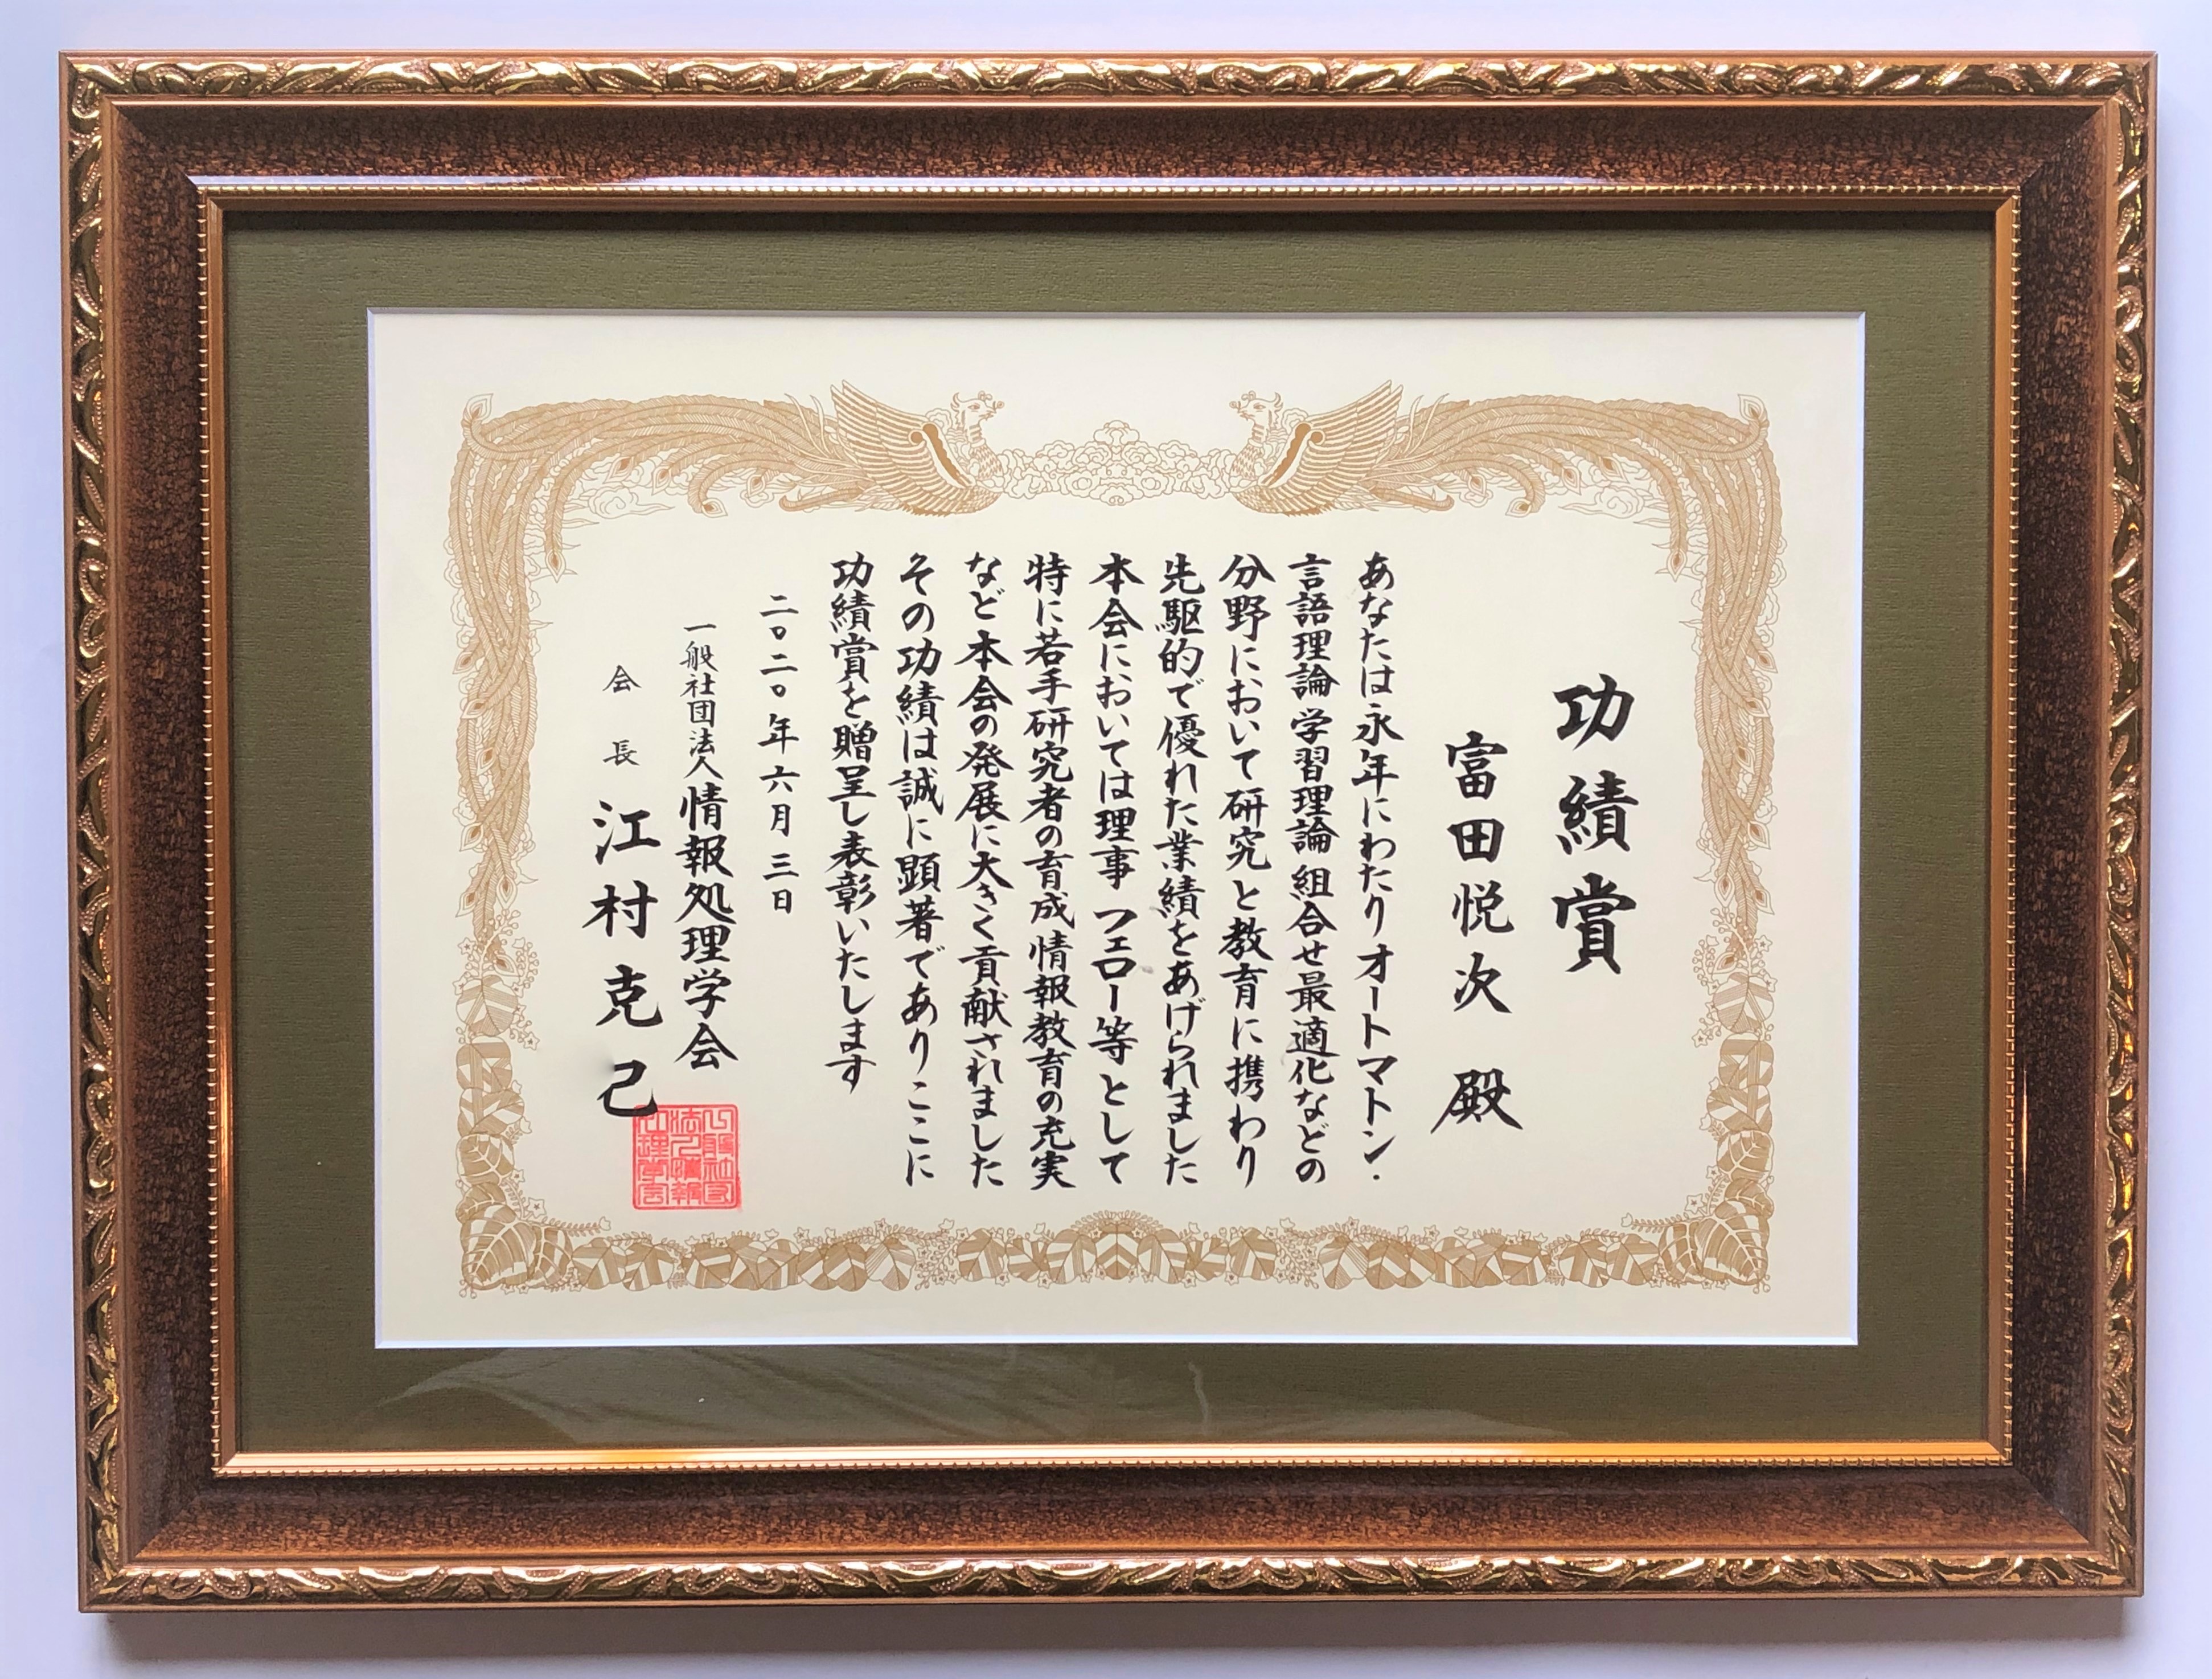 功績賞
富田悦次 殿
あなたは永年にわたりオートマトン・
言語理論 学習理論 組合せ最適化などの
分野において研究と教育に携わり
先駆的で優れた業績をあげられました
本会においては理事 フェロー等として
特に若手研究者の育成 情報教育の充実
など本会の発展に大きく貢献されました
その功績は誠に顕著でありここに
功績賞を贈呈し表彰いたします
二〇二〇年六月三日
一般社団法人情報処理学会
会長 江村克己